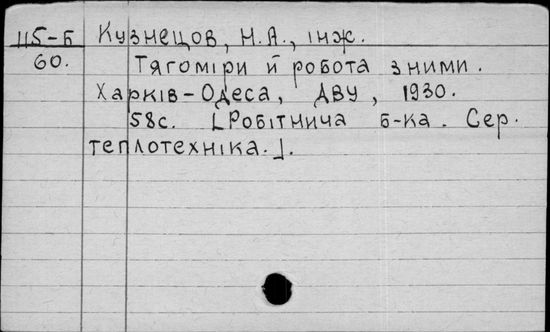 115-Б Кузнецов, Н.А., інж.
60. Тягоміри й робота з ними.
Харків-Одеса, ДВУ, 1930.
58с. [Робітнича б-ка. Сер.
теплотехніка.].